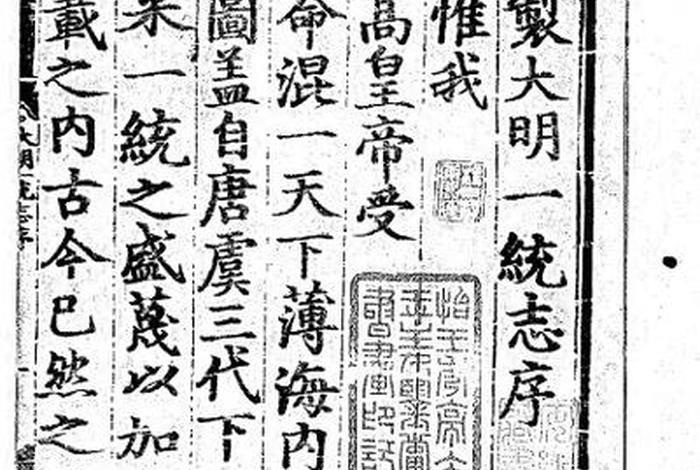 製大明一統志序
惟我
高皇帝受
命混一天下薄海内
圖盖自唐虞三代下
来一統之盛蔑以加
載之内古今已然之
大明一統志序